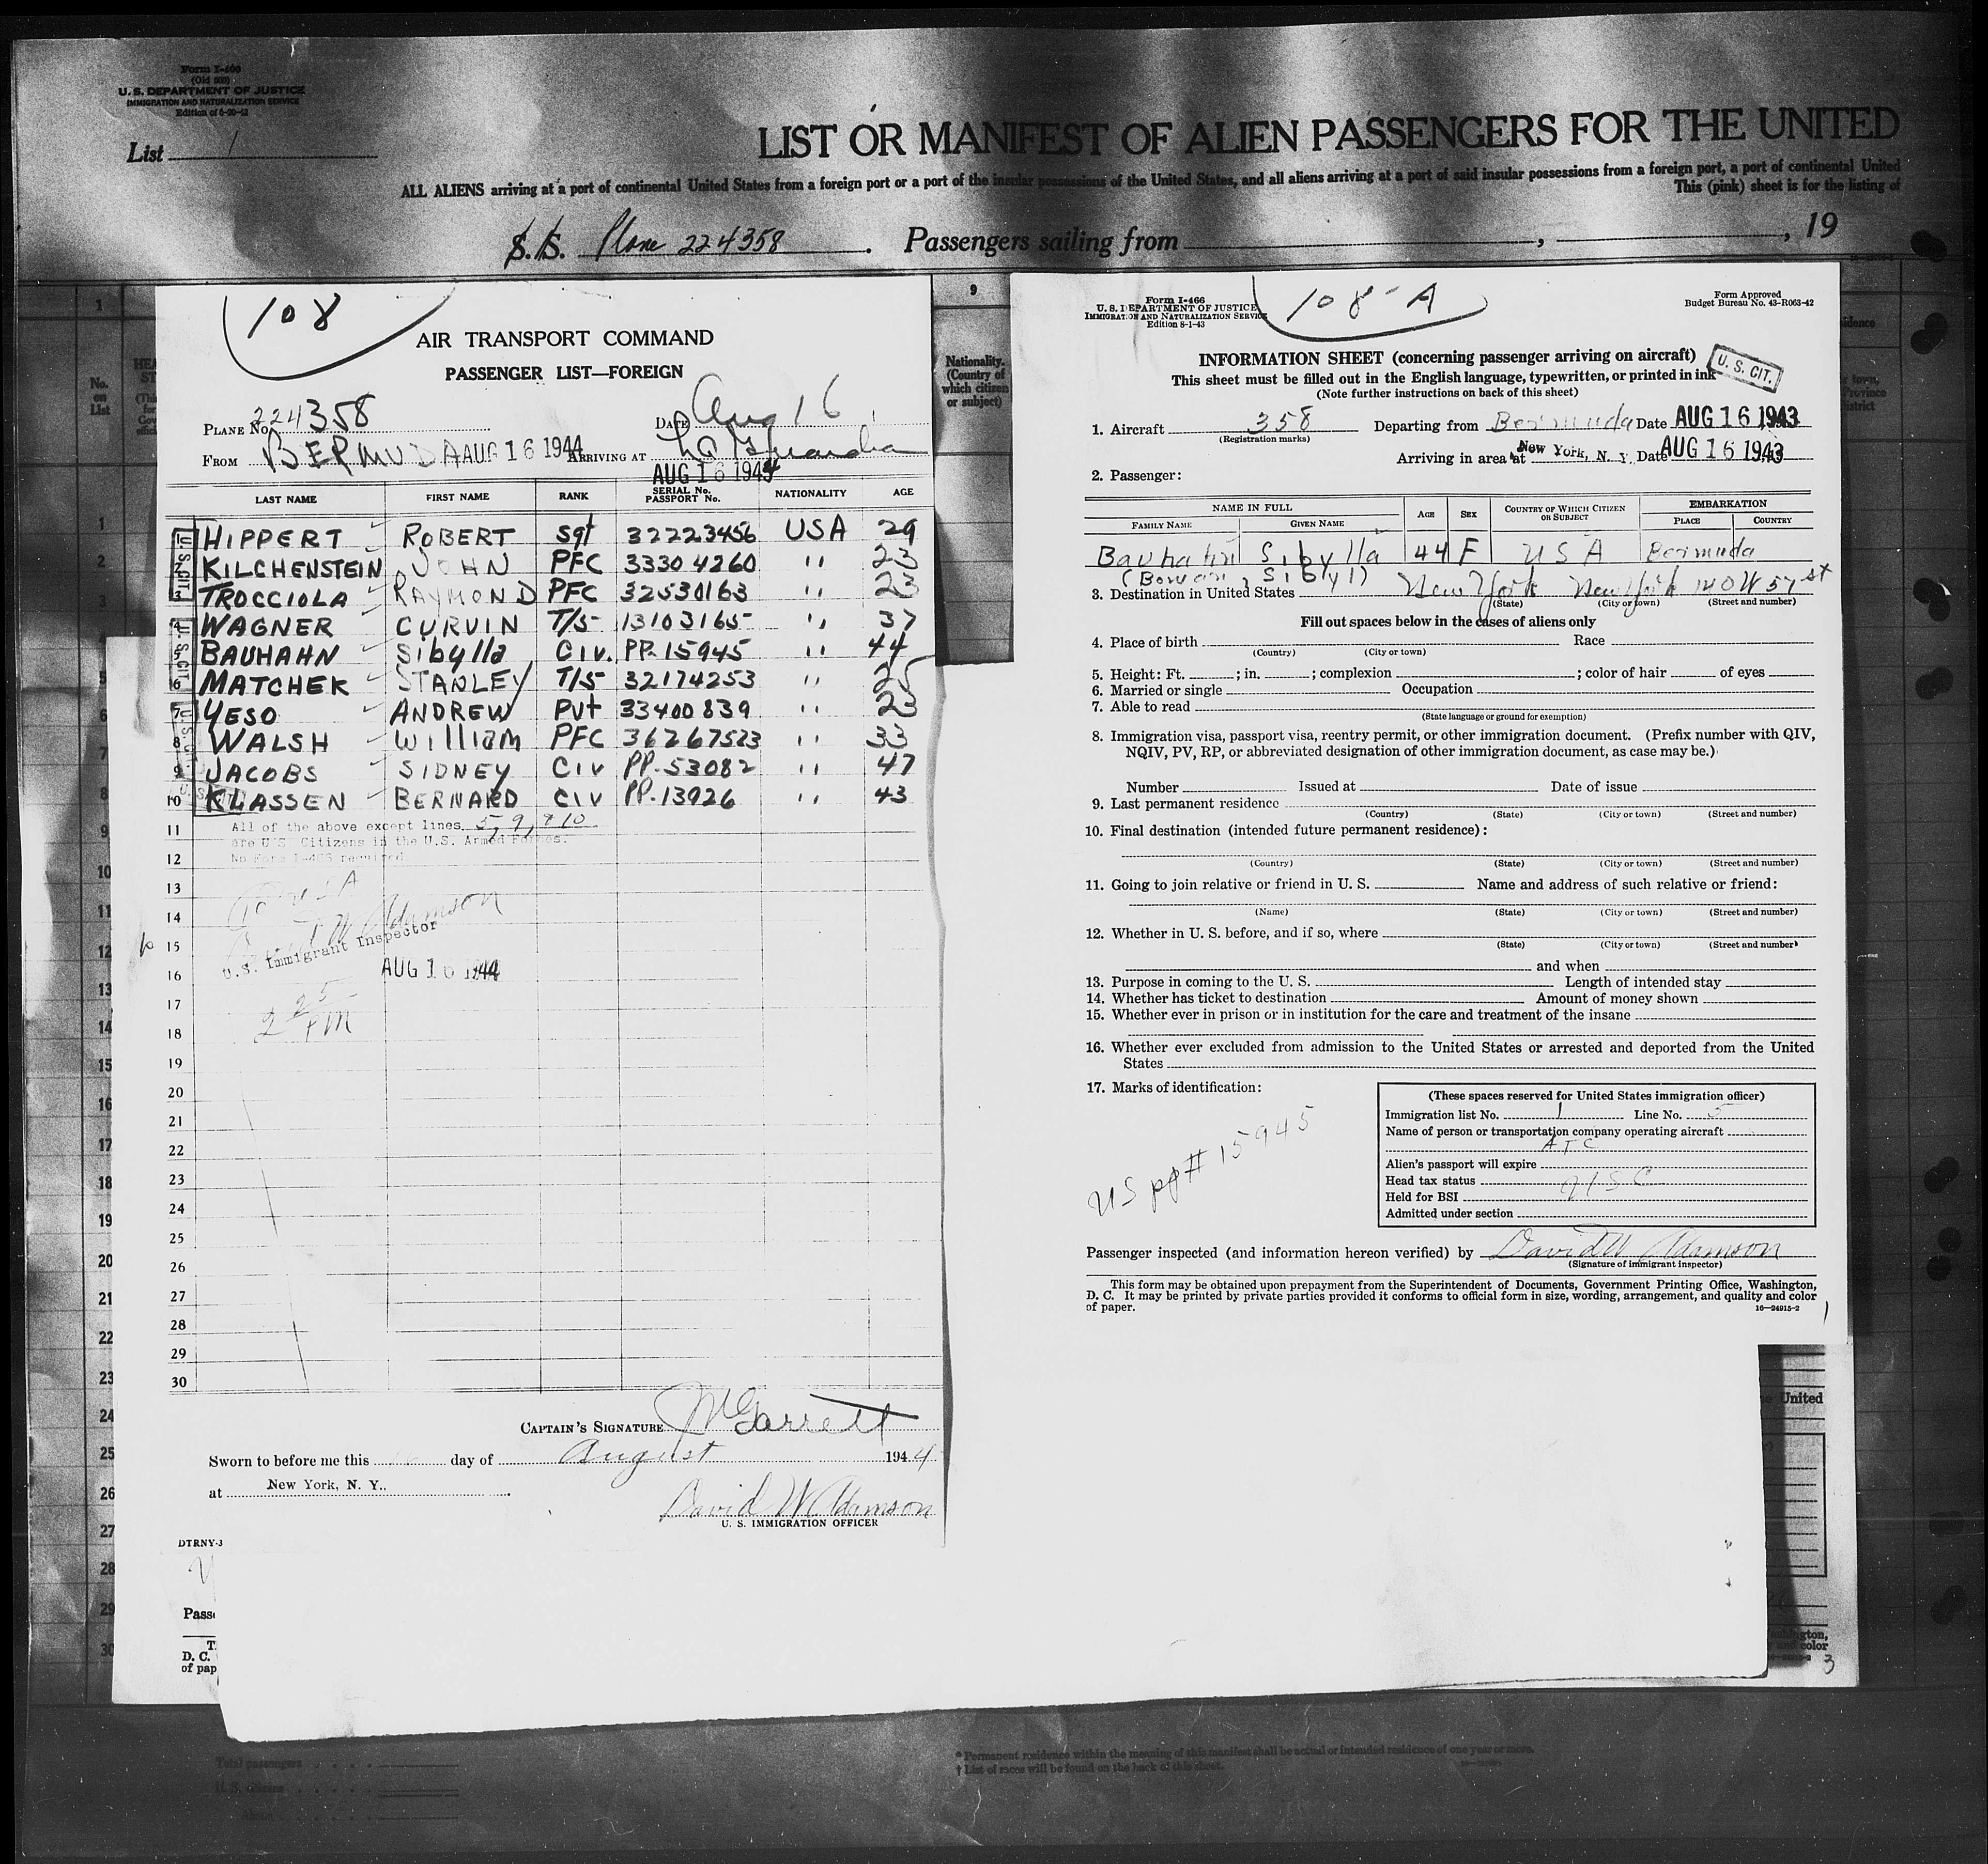 Form I-466
(Old 500)
U. S. DEPARTMENT OF JUSTICE
IMMIGRATION AND NATURALIZATION SERVICE
List 1
LIST OR MANIFEST OF ALIEN PASSENGERS FOR THE UNITED
ALL ALIENS arriving at a port of continental United States from a foreign port or a port of the insular possessions of the United States, and all aliens arriving at a port of said insular possessions from a foreign port, a port of continental United
This (pink) sheet is for the listing of
S.S. Plane 224358. Passengers sailing from , , 19
108
AIR TRANSPORT COMMAND
PASSENGER LIST—FOREIGN
PLANE No. 224358 DATE Aug 16
FROM BERMUDA AUG 16 1944 ARRIVING AT La Guardia
AUG 16 1944
LAST NAME FIRST NAME RANK SERIAL No. PASSPORT No. NATIONALITY AGE
1 HIPPERT ROBERT Sgt 32223456 USA 29
2 KILCHENSTEIN JOHN PFC 33304260 " 23
3 TROCCIOLA RAYMOND PFC 32530163 " 23
4 WAGNER CURVIN T/5 13103165 " 37
5 BAUHAHN Sibylla Civ. PP-15945 " 44
6 MATCHEK STANLEY T/5 32174253 " 25
7 YESO ANDREW Pvt 33400839 " 23
8 WALSH William PFC 36267523 " 33
9 JACOBS SIDNEY Civ PP-53082 " 47
10 KLASSEN BERNARD Civ PP-13926 " 43
11 All of the above except lines 5, 9, + 10
are U.S. Citizens in the U.S. Armed Forces.
12 No Form I-466 required
13
14 David W Adamson
15 U.S. Immigrant Inspector
16 AUG 16 1944
17 2 25
18 PM
19
20
21
22
23
24
25
26
27
28
29
30
CAPTAIN'S SIGNATURE McGarrett
Sworn to before me this day of August 1944
at New York, N. Y.
David W Adamson
U. S. IMMIGRATION OFFICER
DTRNY-3
Pass
D. C.
of pap
9
Nationality.
(Country of
which citizen
or subject)
No.
on
List
Form I-466
U. S. DEPARTMENT OF JUSTICE
IMMIGRATION AND NATURALIZATION SERVICE
Edition 8-1-43
108-A
Form Approved
Budget Bureau No. 43-R063-42
INFORMATION SHEET (concerning passenger arriving on aircraft)
U. S. CIT.
This sheet must be filled out in the English language, typewritten, or printed in ink
(Note further instructions on back of this sheet)
1. Aircraft 358 Departing from Bermuda Date AUG 16 1943
(Registration marks)
Arriving in area at New York, N. Y. Date AUG 16 1943
2. Passenger:
NAME IN FULL AGE SEX COUNTRY OF WHICH CITIZEN OR SUBJECT EMBARKATION
FAMILY NAME GIVEN NAME PLACE COUNTRY
Bauhahn Sibylla 44 F USA Bermuda
3. Destination in United States New York New York 140 W 57 st
(State) (City or town) (Street and number)
Fill out spaces below in the cases of aliens only
4. Place of birth Race
(Country) (City or town)
5. Height: Ft. ; in. ; complexion ; color of hair of eyes
6. Married or single Occupation
7. Able to read
(State language or ground for exemption)
8. Immigration visa, passport visa, reentry permit, or other immigration document. (Prefix number with QIV,
NQIV, PV, RP, or abbreviated designation of other immigration document, as case may be.)
Number Issued at Date of issue
9. Last permanent residence
(Country) (State) (City or town) (Street and number)
10. Final destination (intended future permanent residence):
(Country) (State) (City or town) (Street and number)
11. Going to join relative or friend in U. S. Name and address of such relative or friend:
(Name) (State) (City or town) (Street and number)
12. Whether in U. S. before, and if so, where
(State) (City or town) (Street and number)
and when
13. Purpose in coming to the U. S. Length of intended stay
14. Whether has ticket to destination Amount of money shown
15. Whether ever in prison or in institution for the care and treatment of the insane
16. Whether ever excluded from admission to the United States or arrested and deported from the United
States
17. Marks of identification:
US pp# 15945
(These spaces reserved for United States immigration officer)
Immigration list No. 1 Line No. 5
Name of person or transportation company operating aircraft
ATC
Alien's passport will expire
Head tax status USC
Held for BSI
Admitted under section
Passenger inspected (and information hereon verified) by David W Adamson
(Signature of immigrant inspector)
This form may be obtained upon prepayment from the Superintendent of Documents, Government Printing Office, Washington,
D. C. It may be printed by private parties provided it conforms to official form in size, wording, arrangement, and quality and color
of paper.
16—24915-2
United
3
Total passengers
U. S. citizens
* Permanent residence within the meaning of this manifest shall be actual or intended residence of one year or more.
† List of races will be found on the back of this sheet.